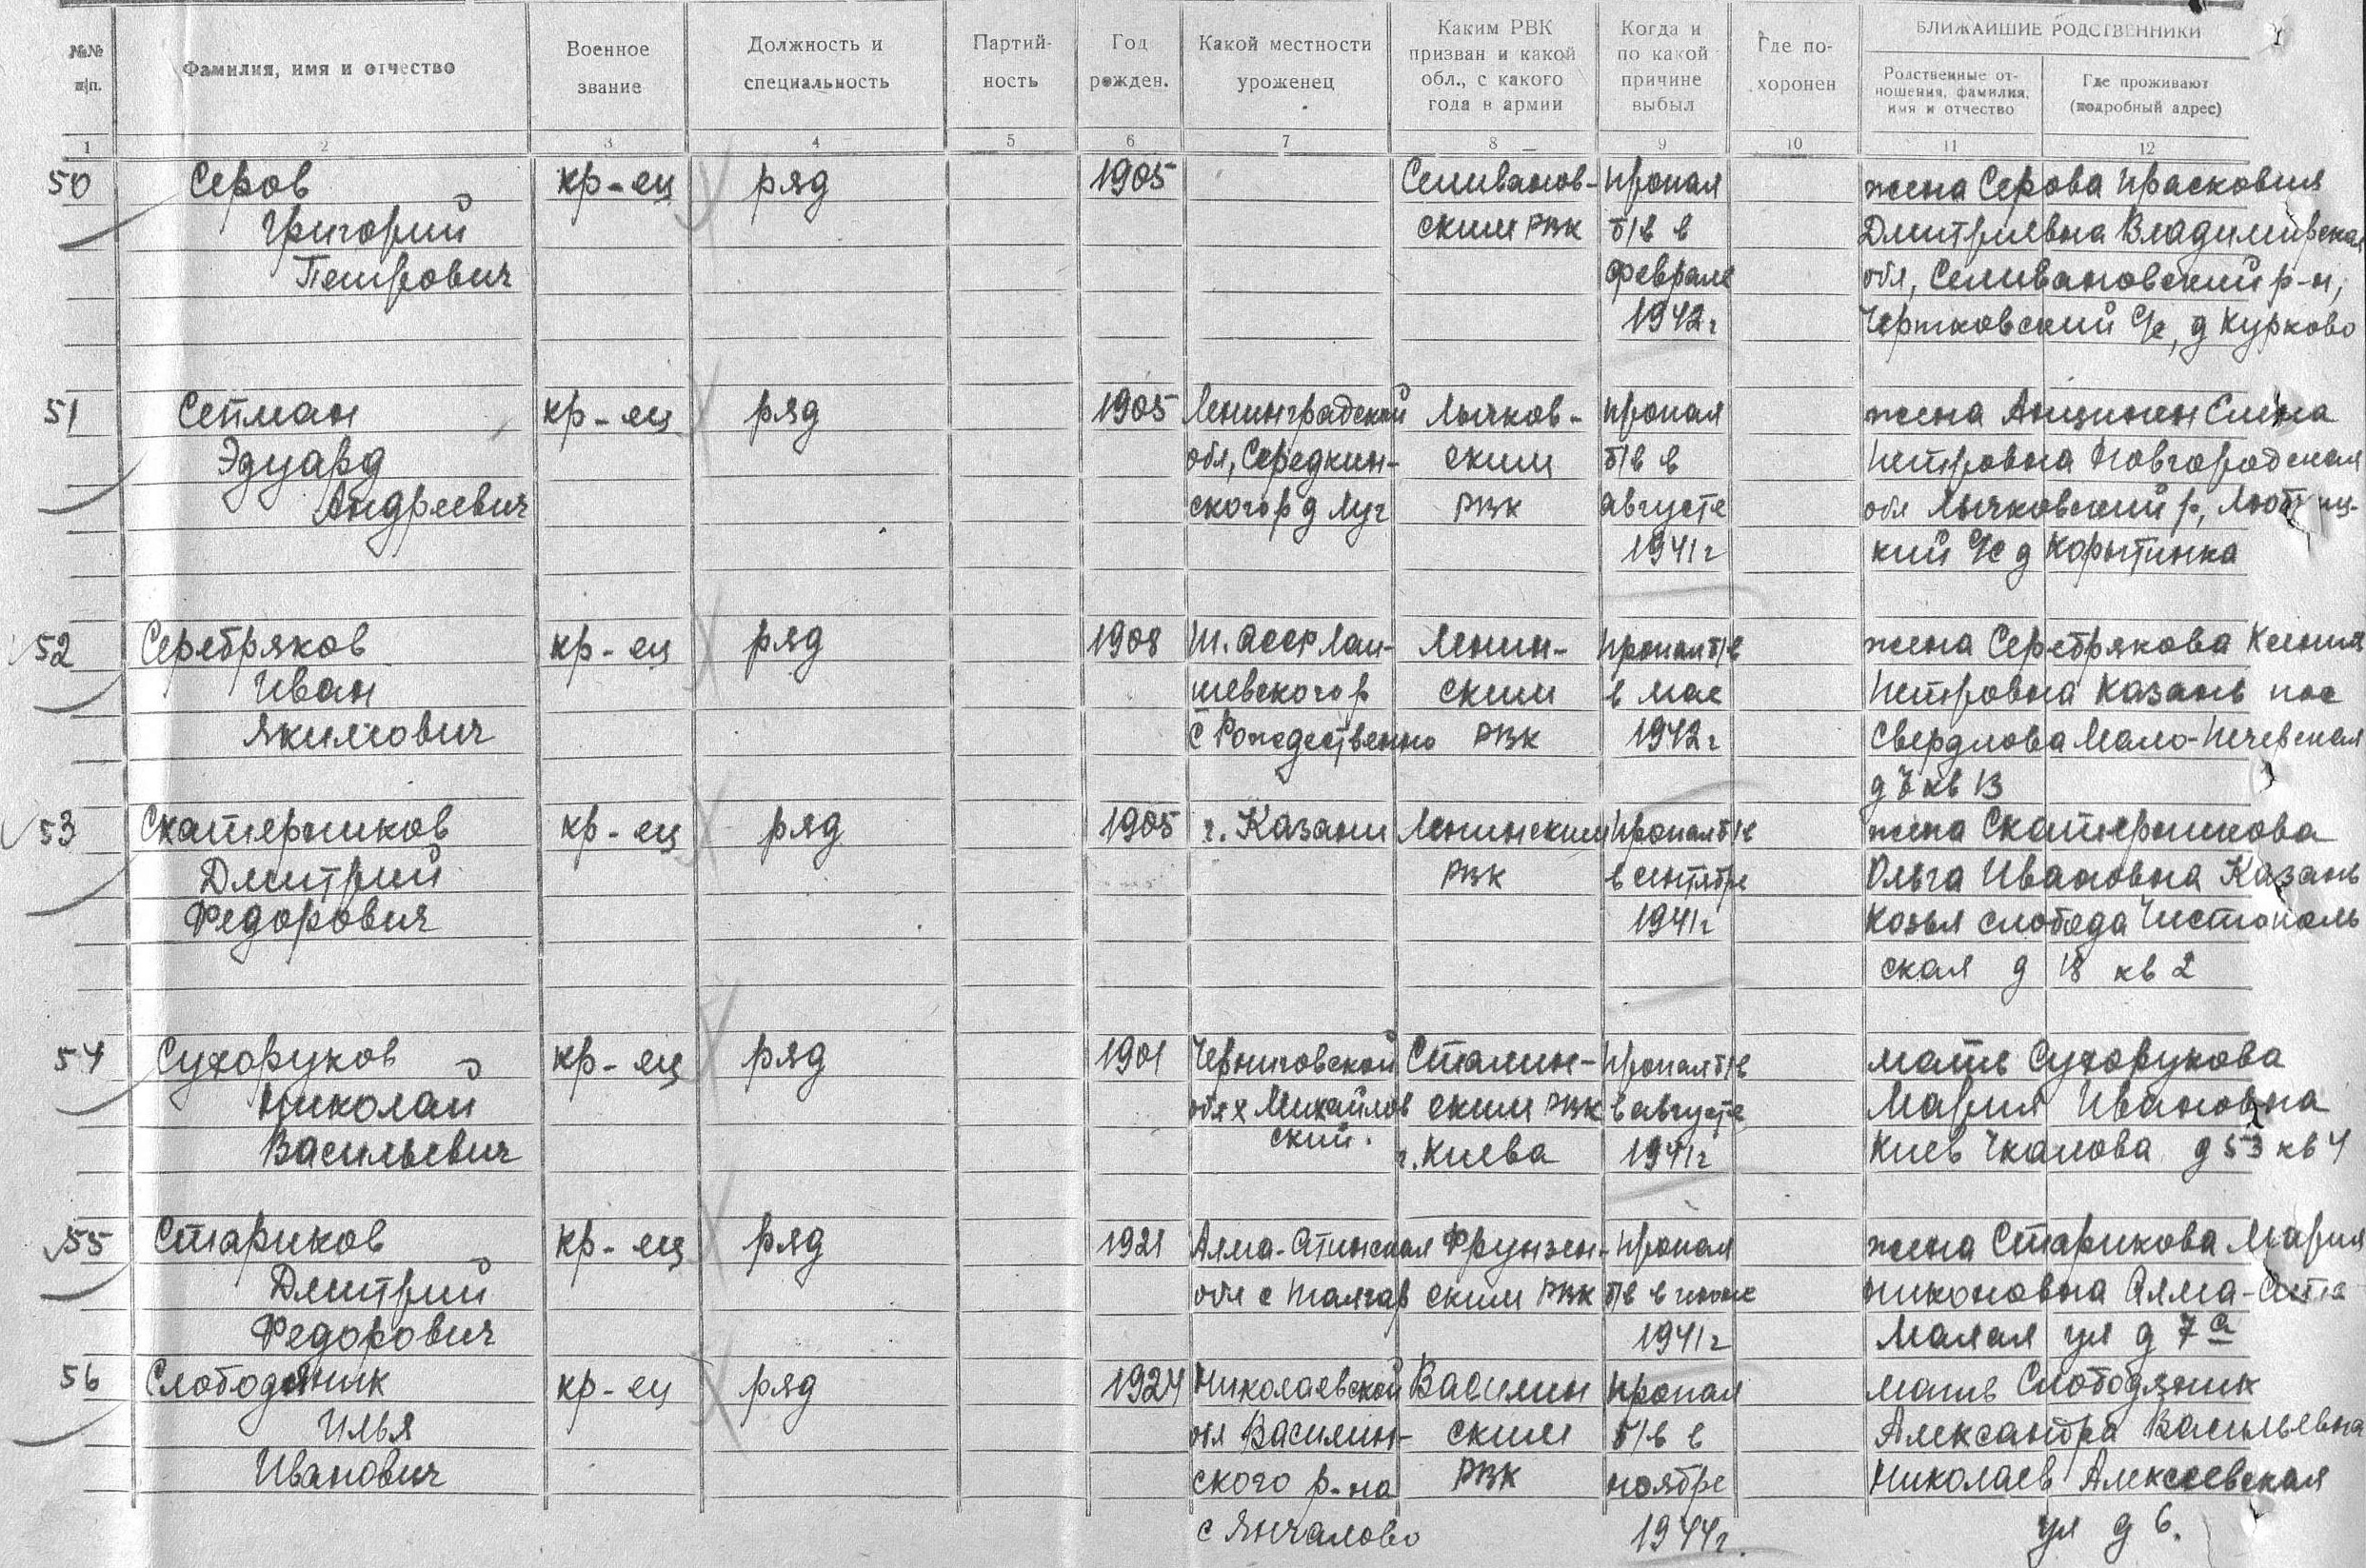 №№ п|п.
Фамилия, имя и отчество
Военное звание
Должность и специальность
Партий- ность
Год рожден.
Какой местности уроженец
Каким РВК призван и какой обл., с какого года в армии
Когда и по какой причине выбыл
Где по- хоронен
БЛИЖАЙШИЕ РОДСТВЕННИКИ
Родственные от- ношения, фамилия, имя и отчество
Где проживают (подробный адрес)
1 2 3 4 5 6 7 8 9 10 11 12
50 Серов кр-ец ряд 1905 Селиванов- пропал жена Серова Прасковия
Григорий ским РВК б/в в Дмитриевна Владимирская
Петрович феврале обл, Селивановский р-н,
1942г Чертковский с/с, д Курково
51 Сепман кр-ец ряд 1905 Ленинградской Лычков- пропал жена Елена
Эдуард обл, Середкин- ским б/в в Петровна Новгородская
Андреевич ского р д Луг РВК августе обл Лычковский р,
1941г кий с/с д Корытинка
52 Серебряков кр-ец ряд 1908 Т. АССР Лаи- Ленин- пропал б/в жена Серебрякова Ксения
Иван шевского р ским в мае Петровна Казань пос
Якимович с Рождествено РВК 1942г Свердлова Мало-Печевская
д 7 кв 13
53 Скатерников кр-ец ряд 1905 г. Казани Ленинским пропал б/в жена Скатерникова
Дмитрий РВК в сентябре Ольга Ивановна Казань
Федорович 1941г Козья слобода Чистополь
ская д 18 кв 2
54 Сухоруков кр-ец ряд 1901 Черниговской Сталин- пропал б/в мать Сухорукова
Николай обл х Михайлов ским РВК в августе Мария Ивановна
ский.
Васильевич г. Киева 1941г Киев Чкалова д 53 кв 4
55 Стариков кр-ец ряд 1921 Алма-Атинская Фрунзен- пропал жена Старикова Мария
Дмитрий обл с Талгар ским РВК б/в в Никоновна Алма-Ата
Федорович 1941г Малая ул д 7а
56 Слободяник кр-ец ряд 1924 Николаевской Василин пропал мать Слободяник
Илья обл Василин- ским б/в в Александра Васильевна
Иванович ского р-на РВК ноябре Николаев Алексеевская
с Янчалово 1944г. ул д 6.